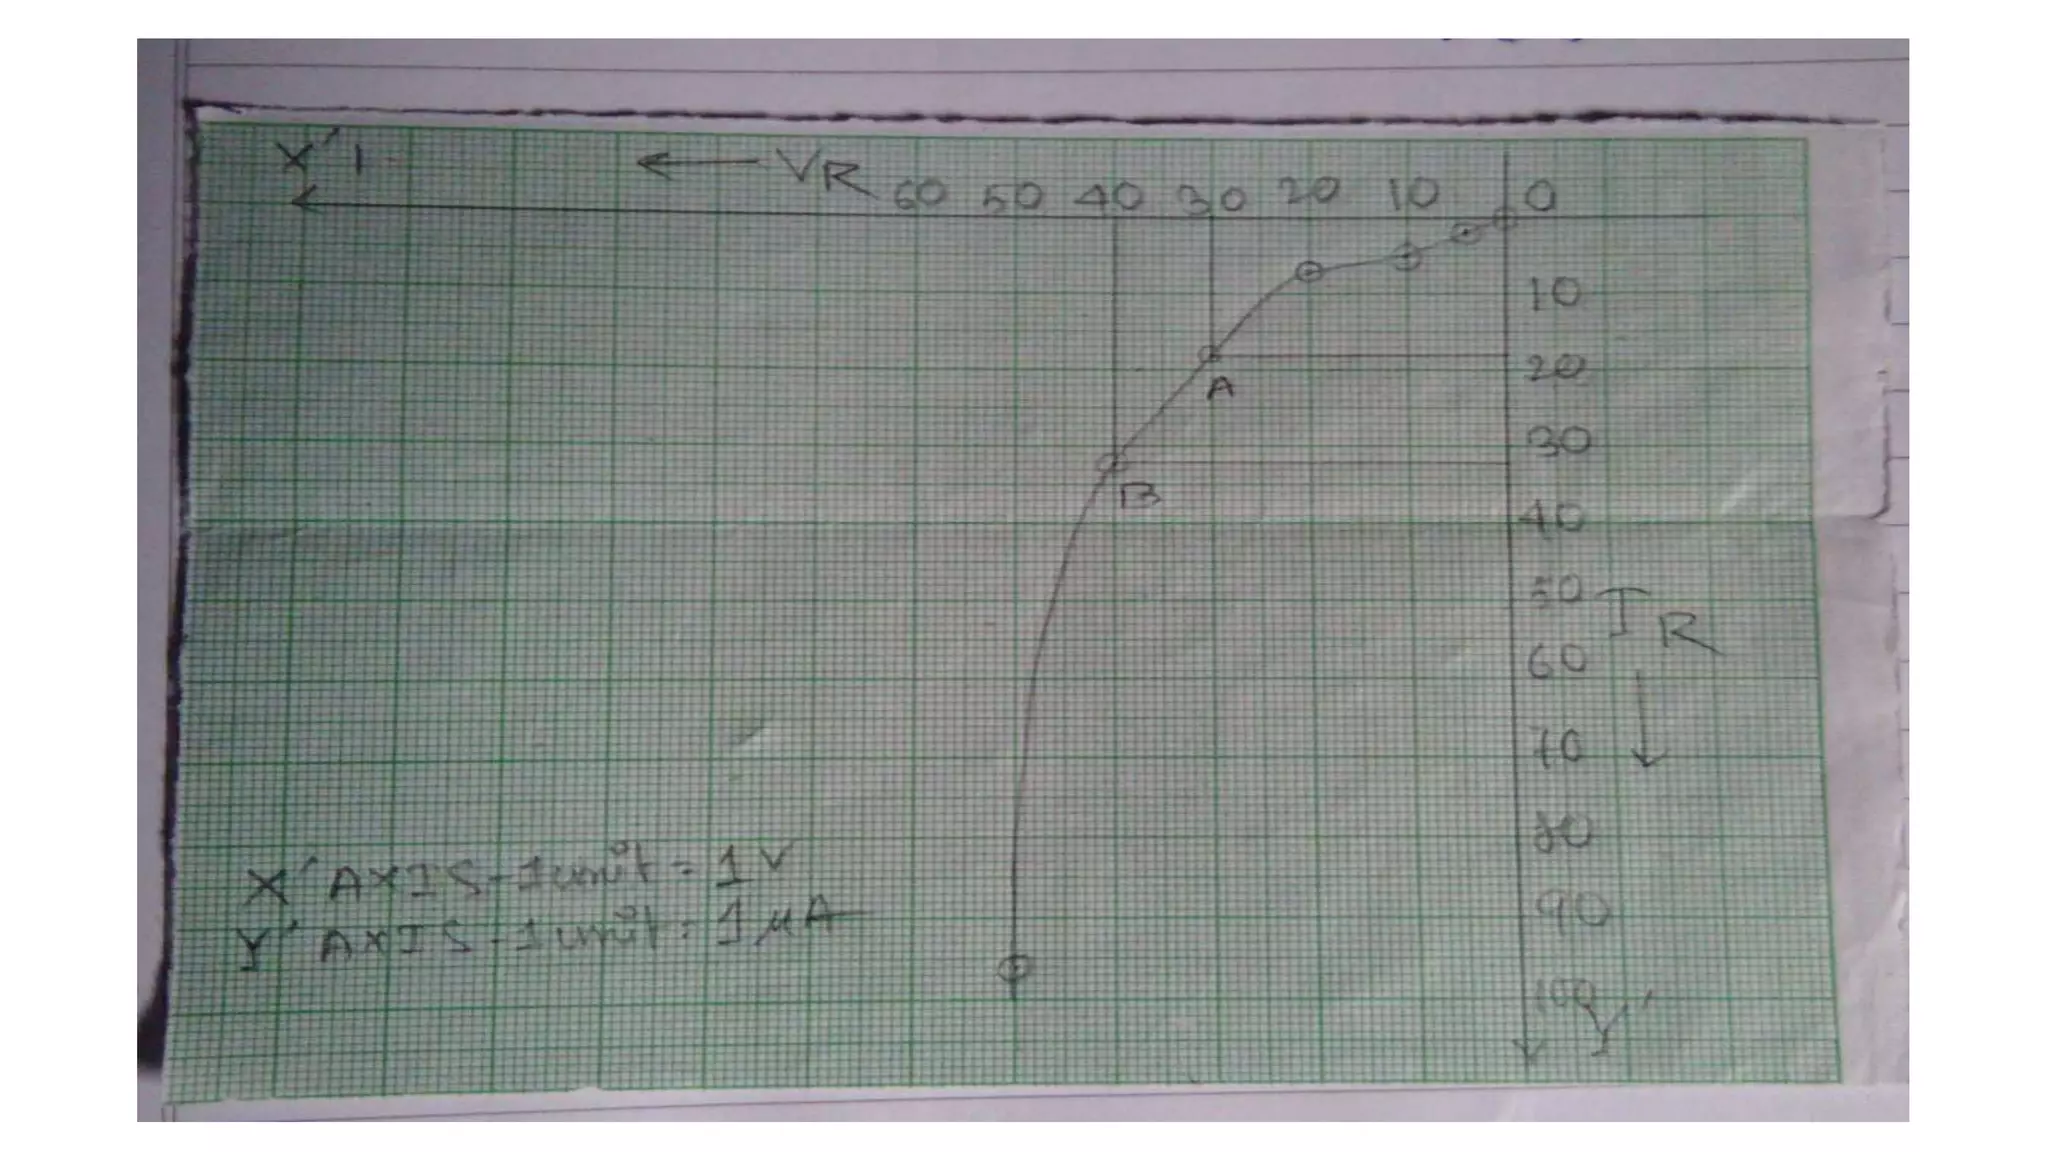 X' 1
← VR
60 50 40 30 20 10 0
10
20
A
30
B
40
50
IR
60
70
80
90
100
Y'
X' AXIS - 1 unit = 1 V
Y' AXIS - 1 unit = 1 μA